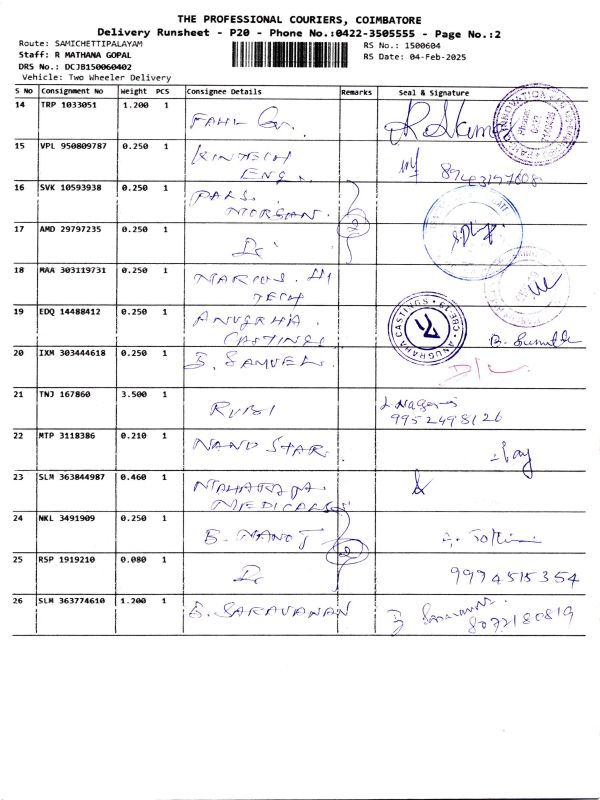 THE PROFESSIONAL COURIERS, COIMBATORE
Delivery Runsheet - P20 - Phone No.:0422-3505555 - Page No.:2
Route: SAMICHETTIPALAYAM
RS No.: 1500604
Staff: R MATHANA GOPAL
RS Date: 04-Feb-2025
DRS No.: DCJB150060402
Vehicle: Two Wheeler Delivery
S No Consignment No Weight PCS Consignee Details Remarks Seal & Signature
14 TRP 1033051 1.200 1
15 VPL 950809787 0.250 1 KINTECH
ENG.
16 SVK 10593938 0.250 1 PALS.
MORGAN. 2
17 AMD 29797235 0.250 1 Do
18 MAA 303119731 0.250 1 MARIUS. HI
TECH
19 EDQ 14488412 0.250 1 ANUGRHA
CASTINGS ANUGRAHA CASTINGS
20 IXM 303444618 0.250 1 S. SAMUEL.
21 TNJ 167860 3.500 1 RUBI
9952498126
22 MTP 3118386 0.210 1 NANO STAR.
23 SLM 363844987 0.460 1
MEDICALS
24 NKL 3491909 0.250 1 B. MANOJ 2
25 RSP 1919210 0.080 1 Do 9994515354
26 SLM 363774610 1.200 1 B. SARAVANAN
8072180819